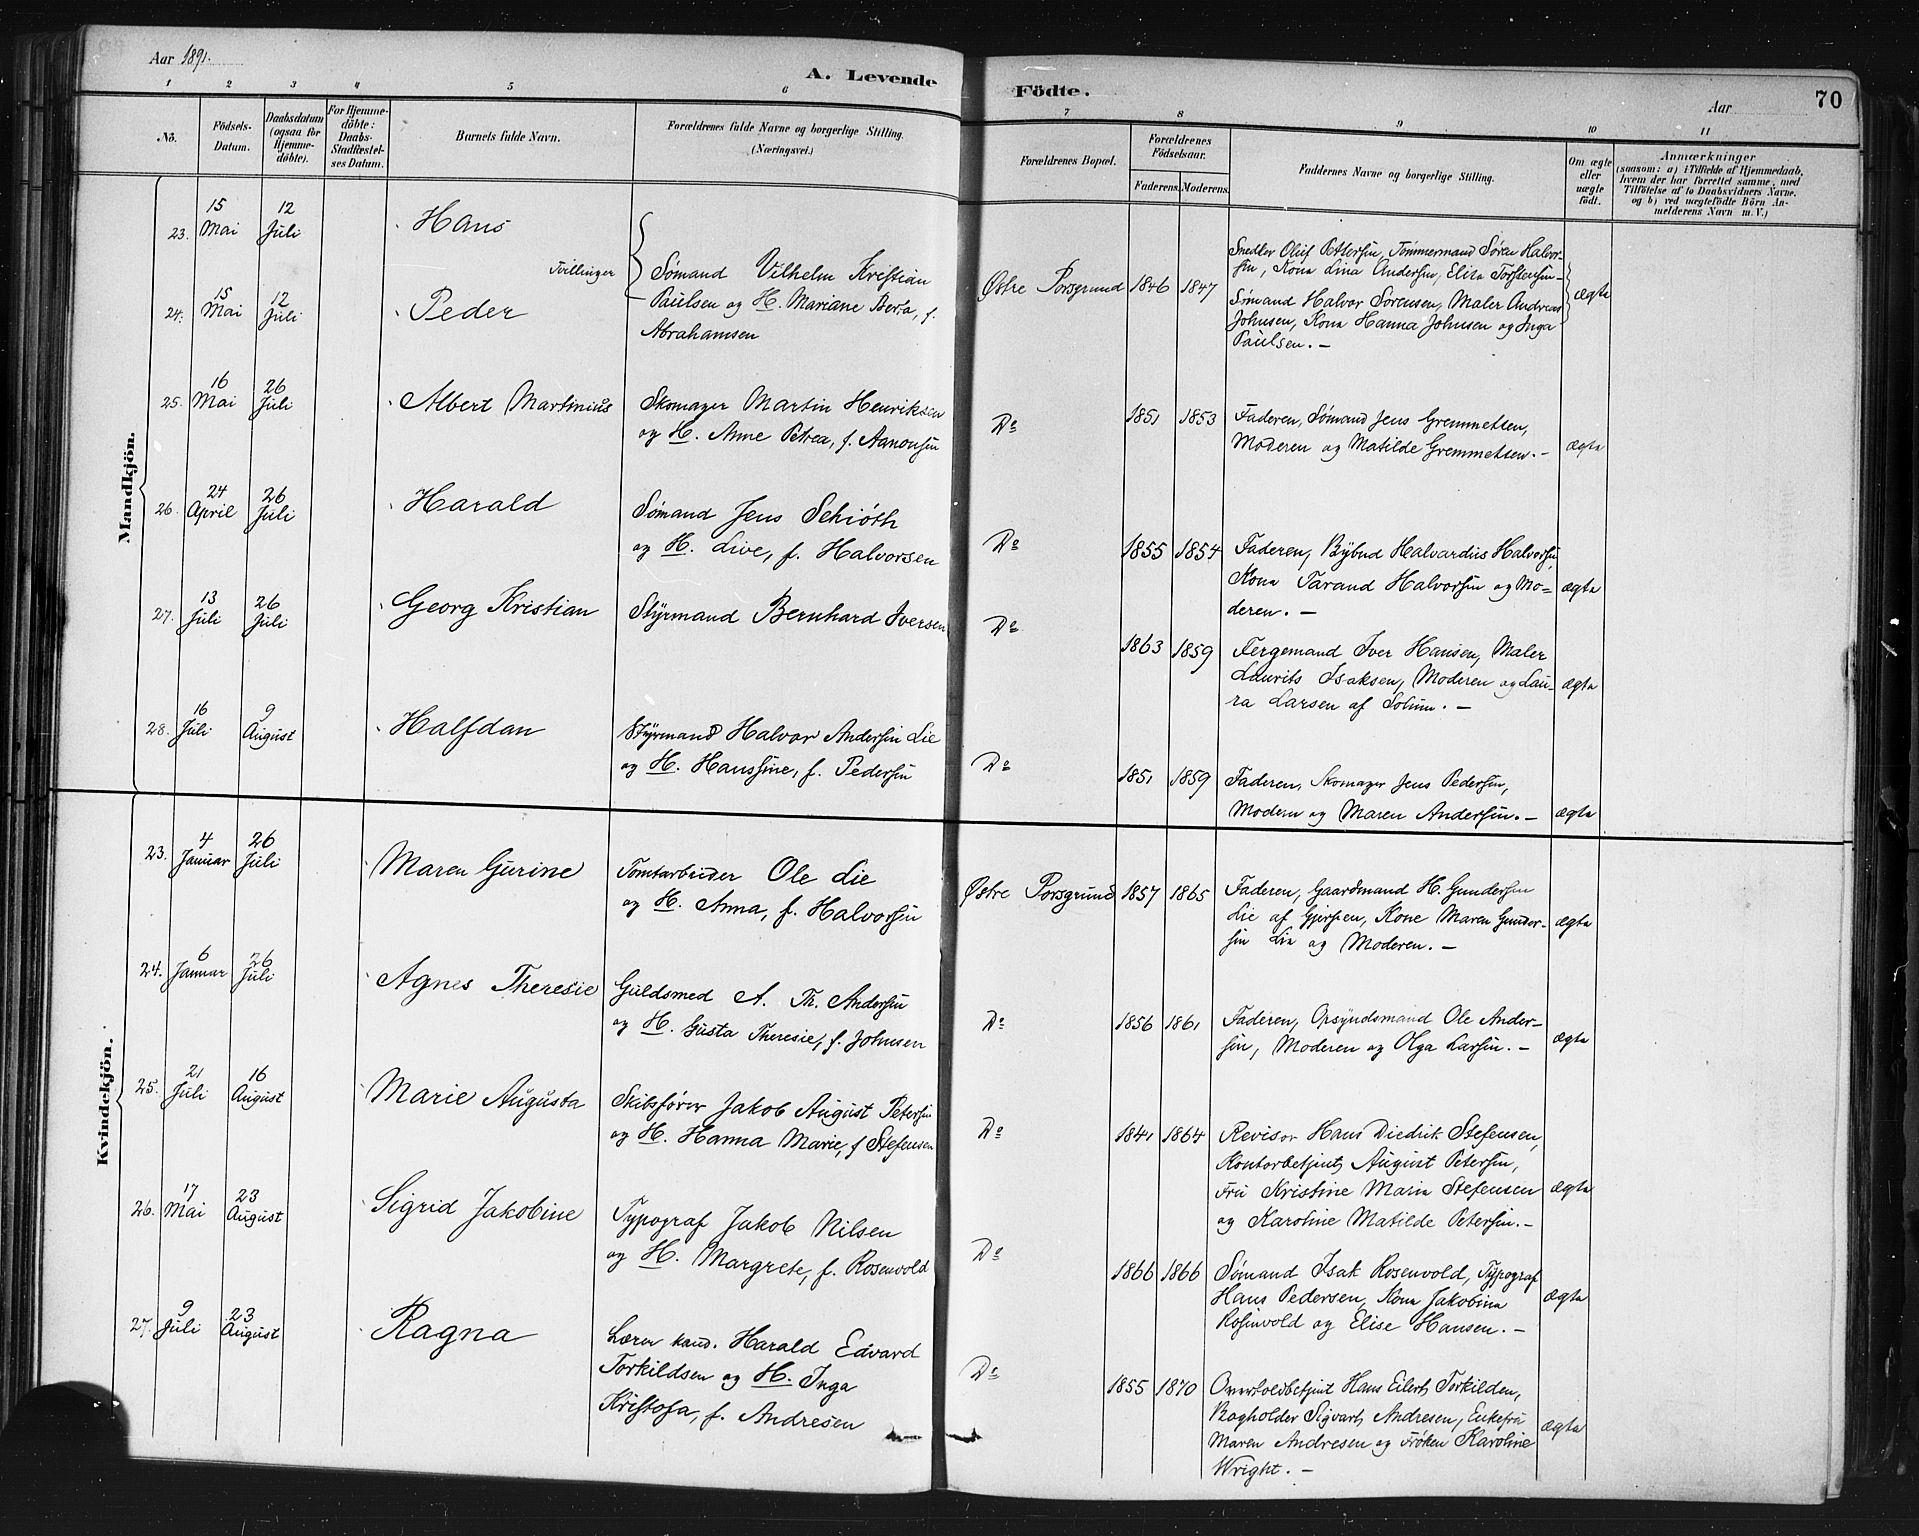 Aar 1891.
A. Levende
Födte.
Aar
70
1 2 3 4 5 6 7 8 9 10 11
No.
Födsels-
Datum.
Daabsdatum
(ogsaa for
Hjemme-
døbte).
For Hjemme-
döbte:
Daabs-
Stadfæstel-
ses Datum.
Barnets fulde Navn.
Forældrenes fulde Navne og borgerlige Stilling.
(Næringsvei.)
Forældrenes Bopæl.
Forældrenes
Födselsaar.
Faderens. Moderens.
Faddernes Navne og borgerlige Stilling.
Om ægte
eller
uægte
født.
Anmærkninger
(saasom: a) i Tilfælde af Hjemmedaab,
hvem der har forrettet samme, med
Tilföielse af to Daabsvidners Navne,
og b) ved uægtefödte Börn An-
melderens Navn m. V.)
Mandkjön.
23. 15 Mai 12 Juli Hans
Tvillinger
24. 15 Mai 12 Juli Peder
Sømand Vilhelm Kristian
Paulsen og H. Mariane Berta, f.
Abrahamsen
Østre Porsgrund 1846 1847
Snedker Oluf Pettersen, Tømmermand Søren Halvor-
sen, Kona Lina Andersen, Elita Torstensen -
Sømand Halvor Sørensen, Maler Andreas
Johnsen, Kona Hanna Johnsen og Inga
Paulsen. -
ægta
25. 16 Mai 26 Juli Albert Martinius
Skomager Martin Henriksen
og H. Anne Petrea, f. Aanonsen
Do 1851 1853
Faderen, Sømand Jens Gremmetsen,
Moderen og Matilde Gremmetsen. -
ægta
26. 24 April 26 Juli Harald
Sømand Jens Schiøth
og H. Live, f. Halvorsen
Do 1855 1854
Faderen, Bybud Halvardus Halvorsen,
Kona Tarand Halvorsen og Mo-
deren. -
ægta
27. 13 Juli 26 Juli Georg Kristian
Styrmand Bernhard Iversen
Do 1863 1859
Fergemand Iver Hansen, Maler
Laurits Isaksen, Moderen og Lau-
ra Larsen af Solum. -
ægta
28. 16 Juli 9 August Halfdan
Styrmand Halvor Andersen Lie
og H. Hanssine, f. Pedersen
Do 1851 1859
Faderen, Skomager Jens Pedersen,
Modern og Maren Andersen. -
ægta
Kvindekjön.
23. 4 Januar 26 Juli Maren Gurine
Tomtarbeider Ole Lie
og H. Anna, f. Halvorsen
Østre Porsgrund 1857 1865
Faderen, Gaardmand H. Gundersen
Lie af Gjerpen, Kone Maren Gunder-
sen Lie og Moderen. -
ægta
24. 6 Januar 26 Juli Agnes Theresie
Guldsmed A. Th. Andersen
og H. Gusta Theresie, f. Johnsen
Do 1856 1861
Faderen, Opsyndsmand Ole Ander-
sen, Moderen og Olga Larsen. -
ægta
25. 21 Juli 16 August Marie Augusta
Skibsfører Jakob August Petersen
og H. Hanna Marie, f Stefensen
Do 1841 1864
Revisor Hans Diedrik Stefensen,
Kontorbetjent August Petersen,
Fru Kristine Maria Stefensen
og Karoline Matilde Petersen. -
ægta
26. 17 Mai 23 August Sigrid Jakobine
Typograf Jakob Nilsen
og H. Margrete, f. Rosenvold
Do 1866 1866
Sømand Isak Rosenvold, Typograf
Hans Pedersen, Kona Jakobina
Rosenvold og Elise Hansen. -
ægta
27. 9 Juli 23 August Ragna
Lærer kand. Harald Edvard
Torkildsen og H. Inga
Kristofa, f. Andresen
Do 1855 1870
Overtoldbetjent Hans Eilert Torkilden,
Bogholder Sigvart Andresen, Enkefru
Maren Andresen og Frøken Karoline
Wright. -
ægta